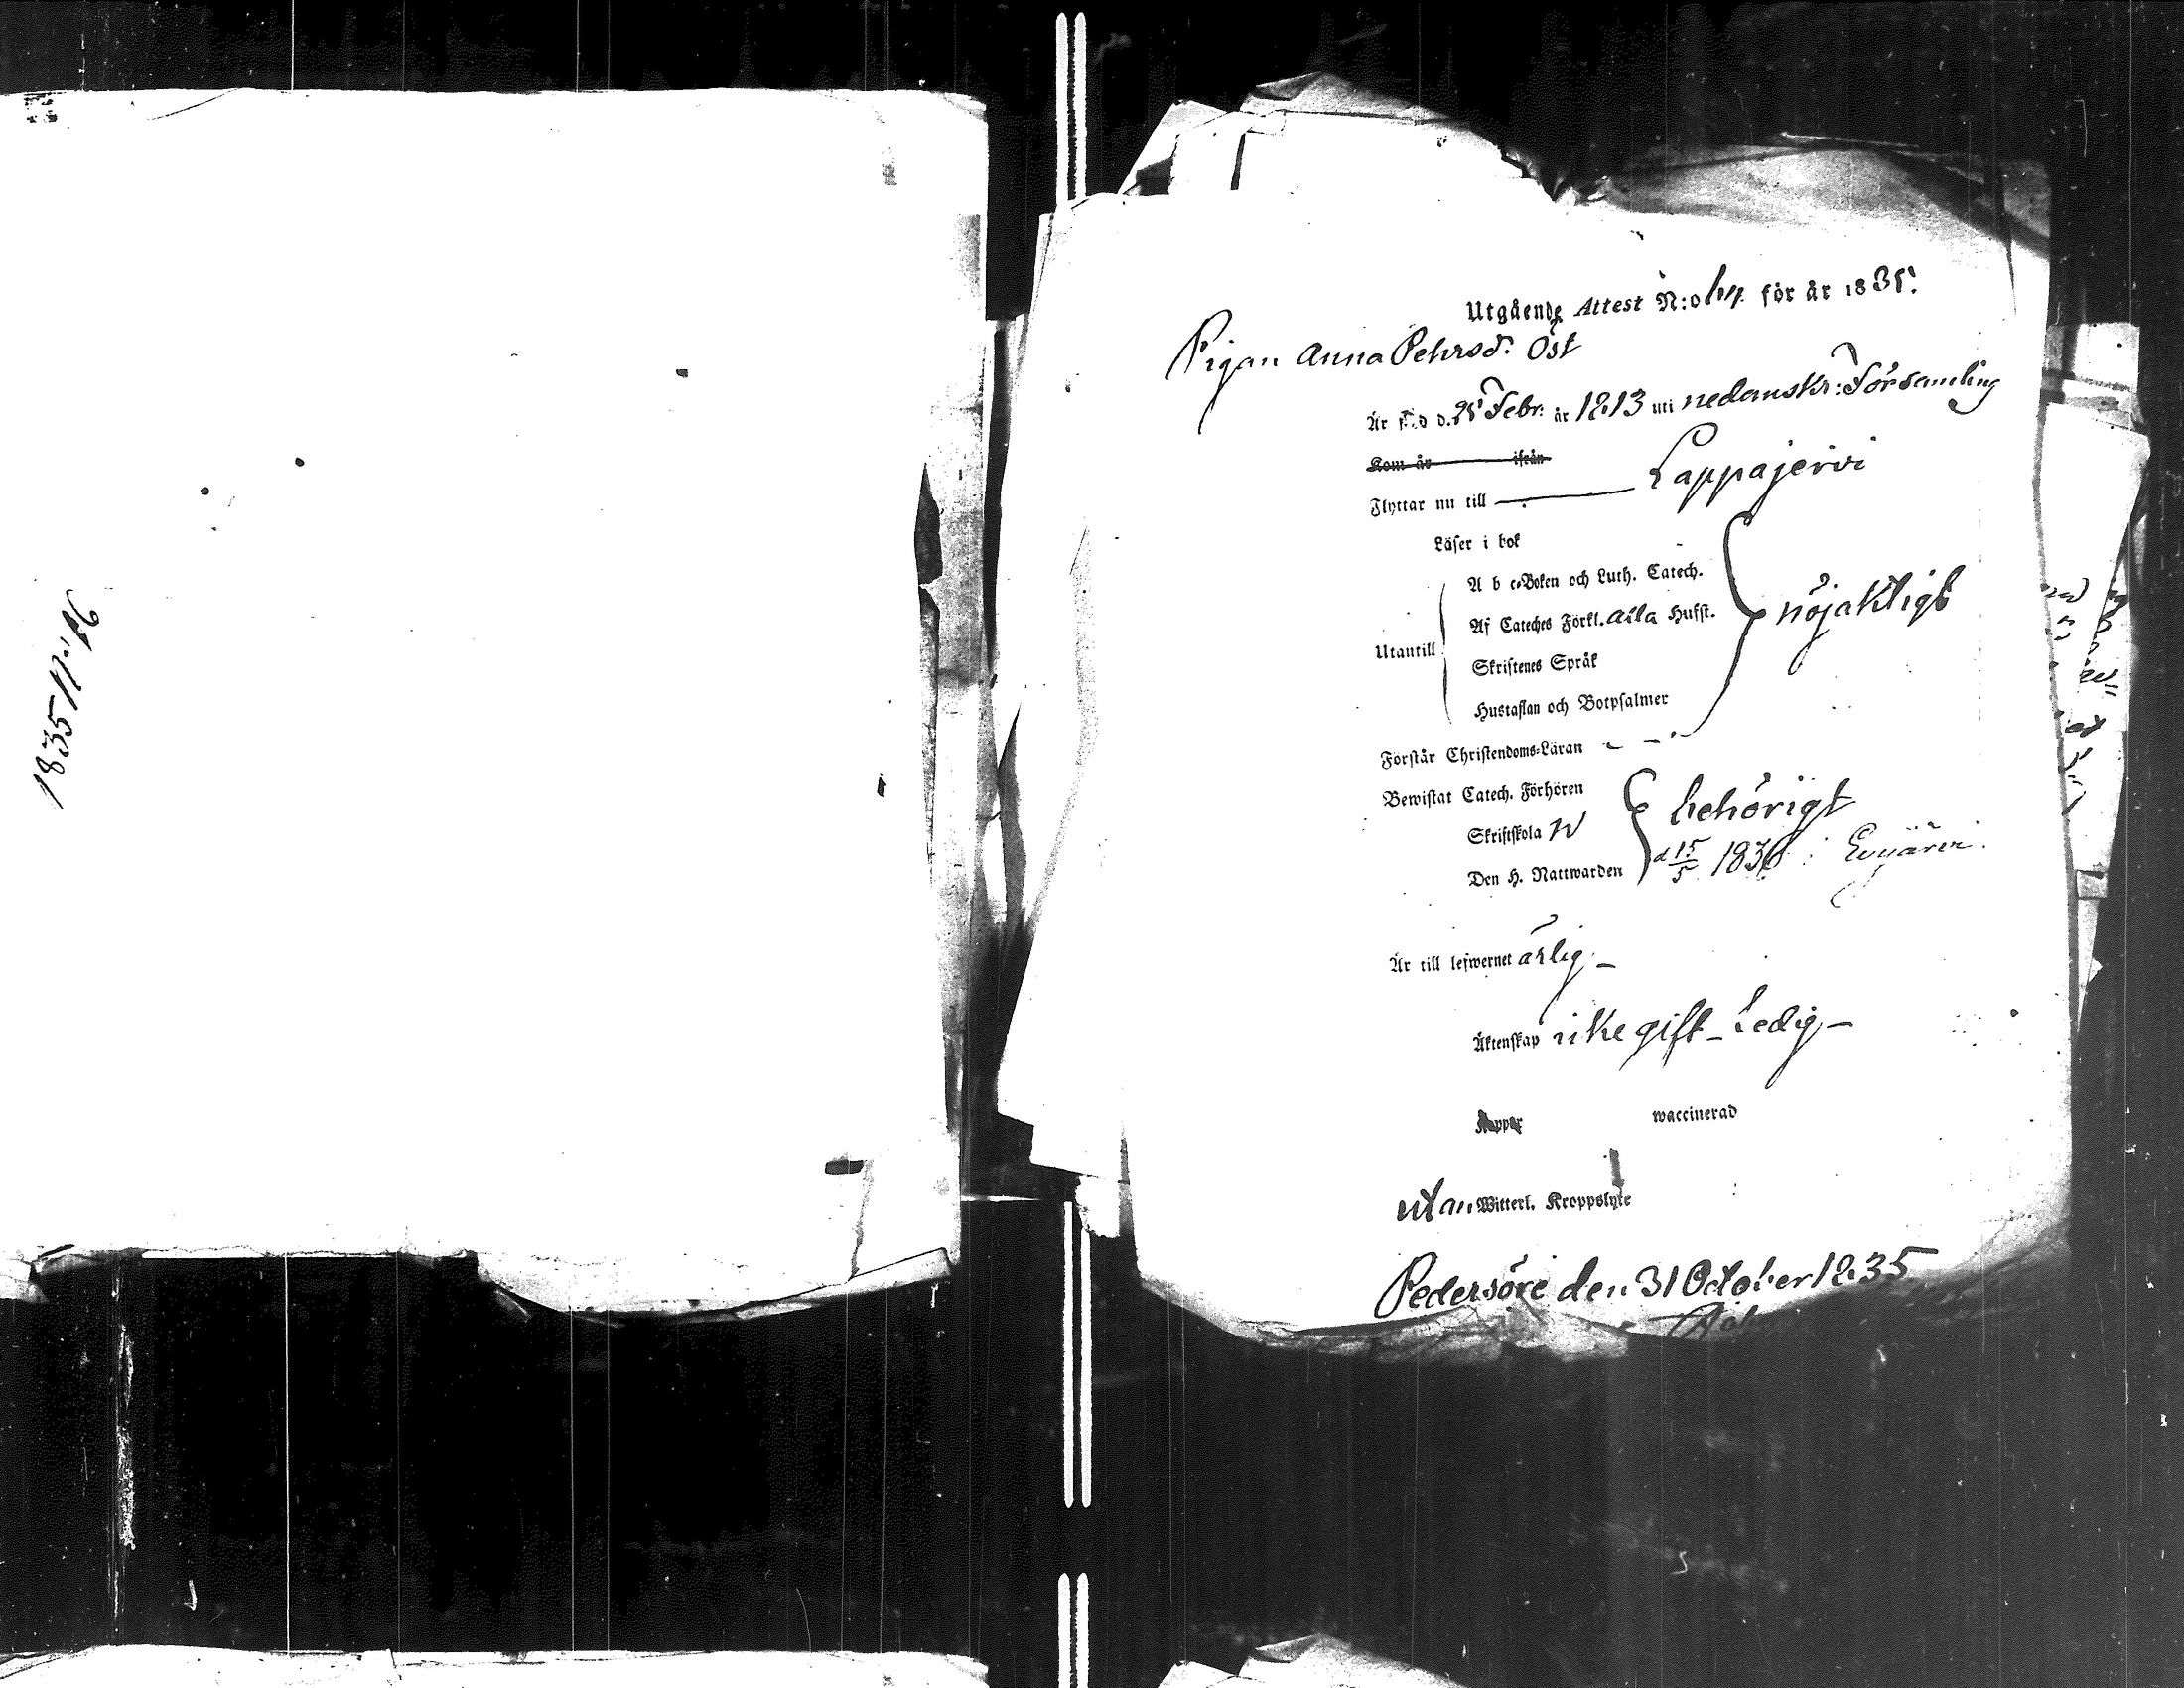 1835 N:o 26
Utgående Attest N:o 64 för år 1835.
Pigan Anna Pehrsd:r Öst
Är född d. 25 Febr: år 1813 uti nedanskr: Församling
Kom år ifrån
Flyttar nu till Lappajervi
Läser i bok
A b c-Boken och Luth. Catech.
Af Cateches Förkl. alla Hufst. nöjaktigt
Utantill
Skriftenes Språk
Hustaflan och Botpsalmer
Förstår Christendoms-Läran
Bewistat Catech. Förhören behörigt
Skriftskola
Den H. Nattwarden d 15/5 1836 i Evijärvi.
Är till lefwernet ärlig
Äktenskap icke gift - Ledig
Koppor waccinerad
utan Witterl. Kroppslyte
Pedersöre den 31 October 1835